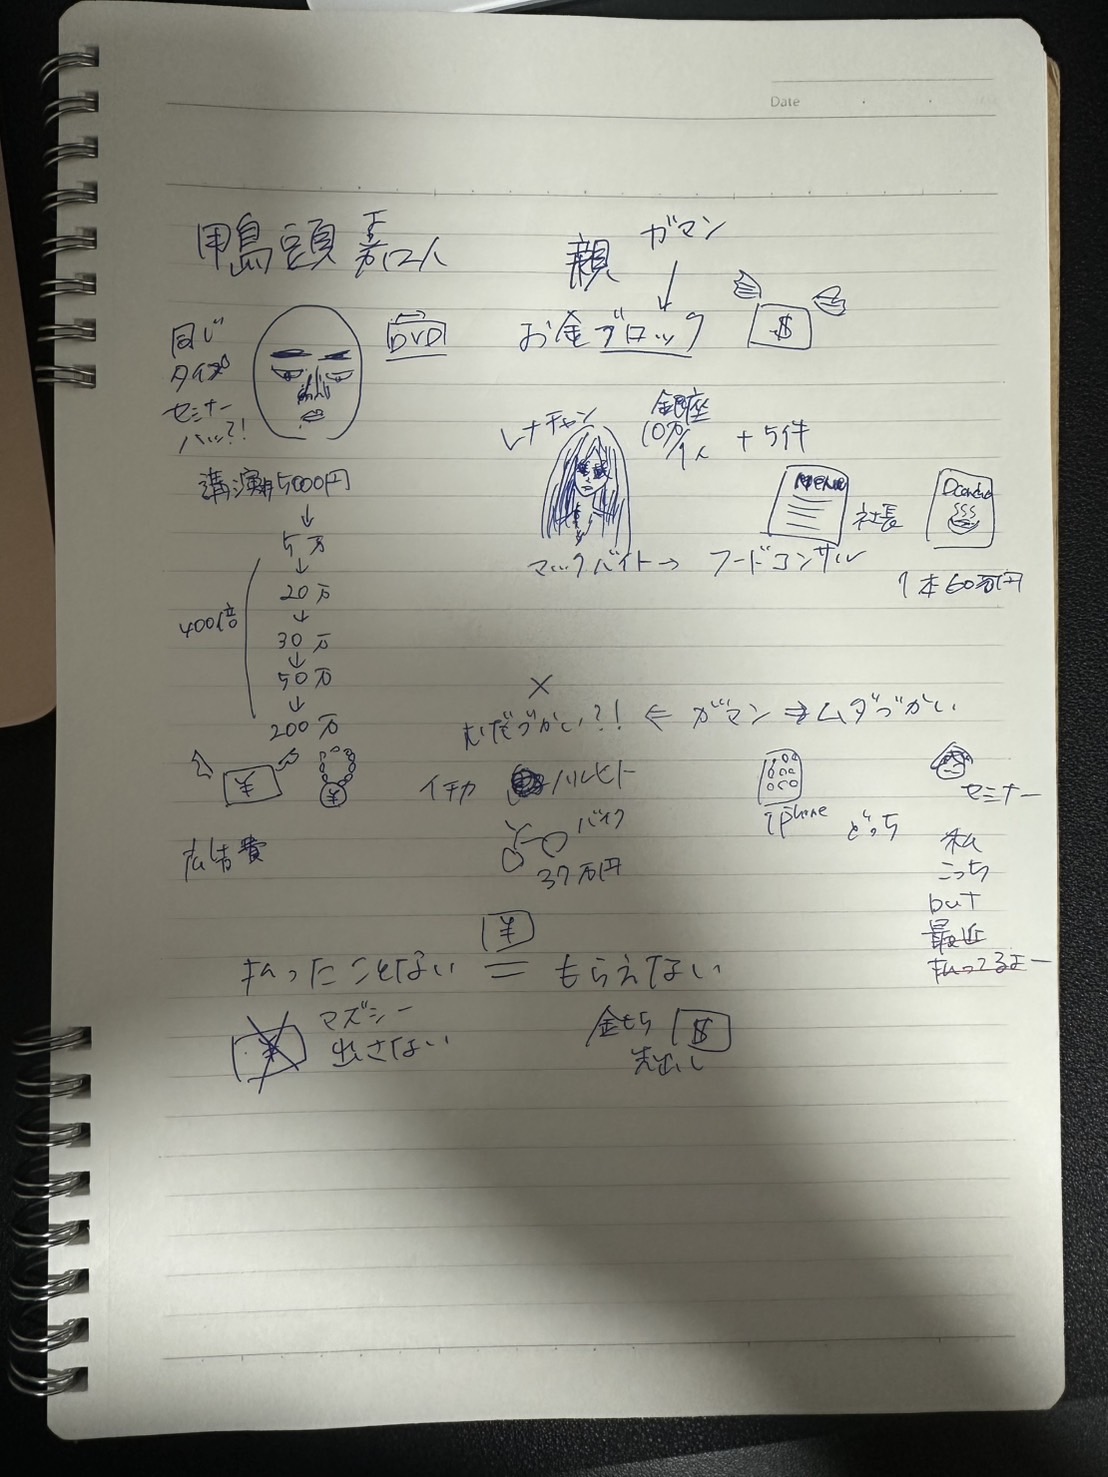 Date
鴨頭嘉人
親 ガマン
↓
お金ブロック
$
同じ
タイプ
セミナー
DVD
講演 5000円
↓
5万
↓
20万
↓
30万
↓
50万
↓
200万
400倍
¥
¥
広告費
レナチャン
銀座
10万/1人
+5件
MENU
社長
マックバイト→ フードコンサル
1本60万円
×
むだづかい?! ⇐ ガマン ⇒ ムダづかい
イチカ
ハルヒト
バイク
37万円
iphone
どっち
セミナー
私
こっち
but
最近
払ってるよー
¥
払ったことない = もらえない
¥
マズシー
出さない
金もち
$
先出し